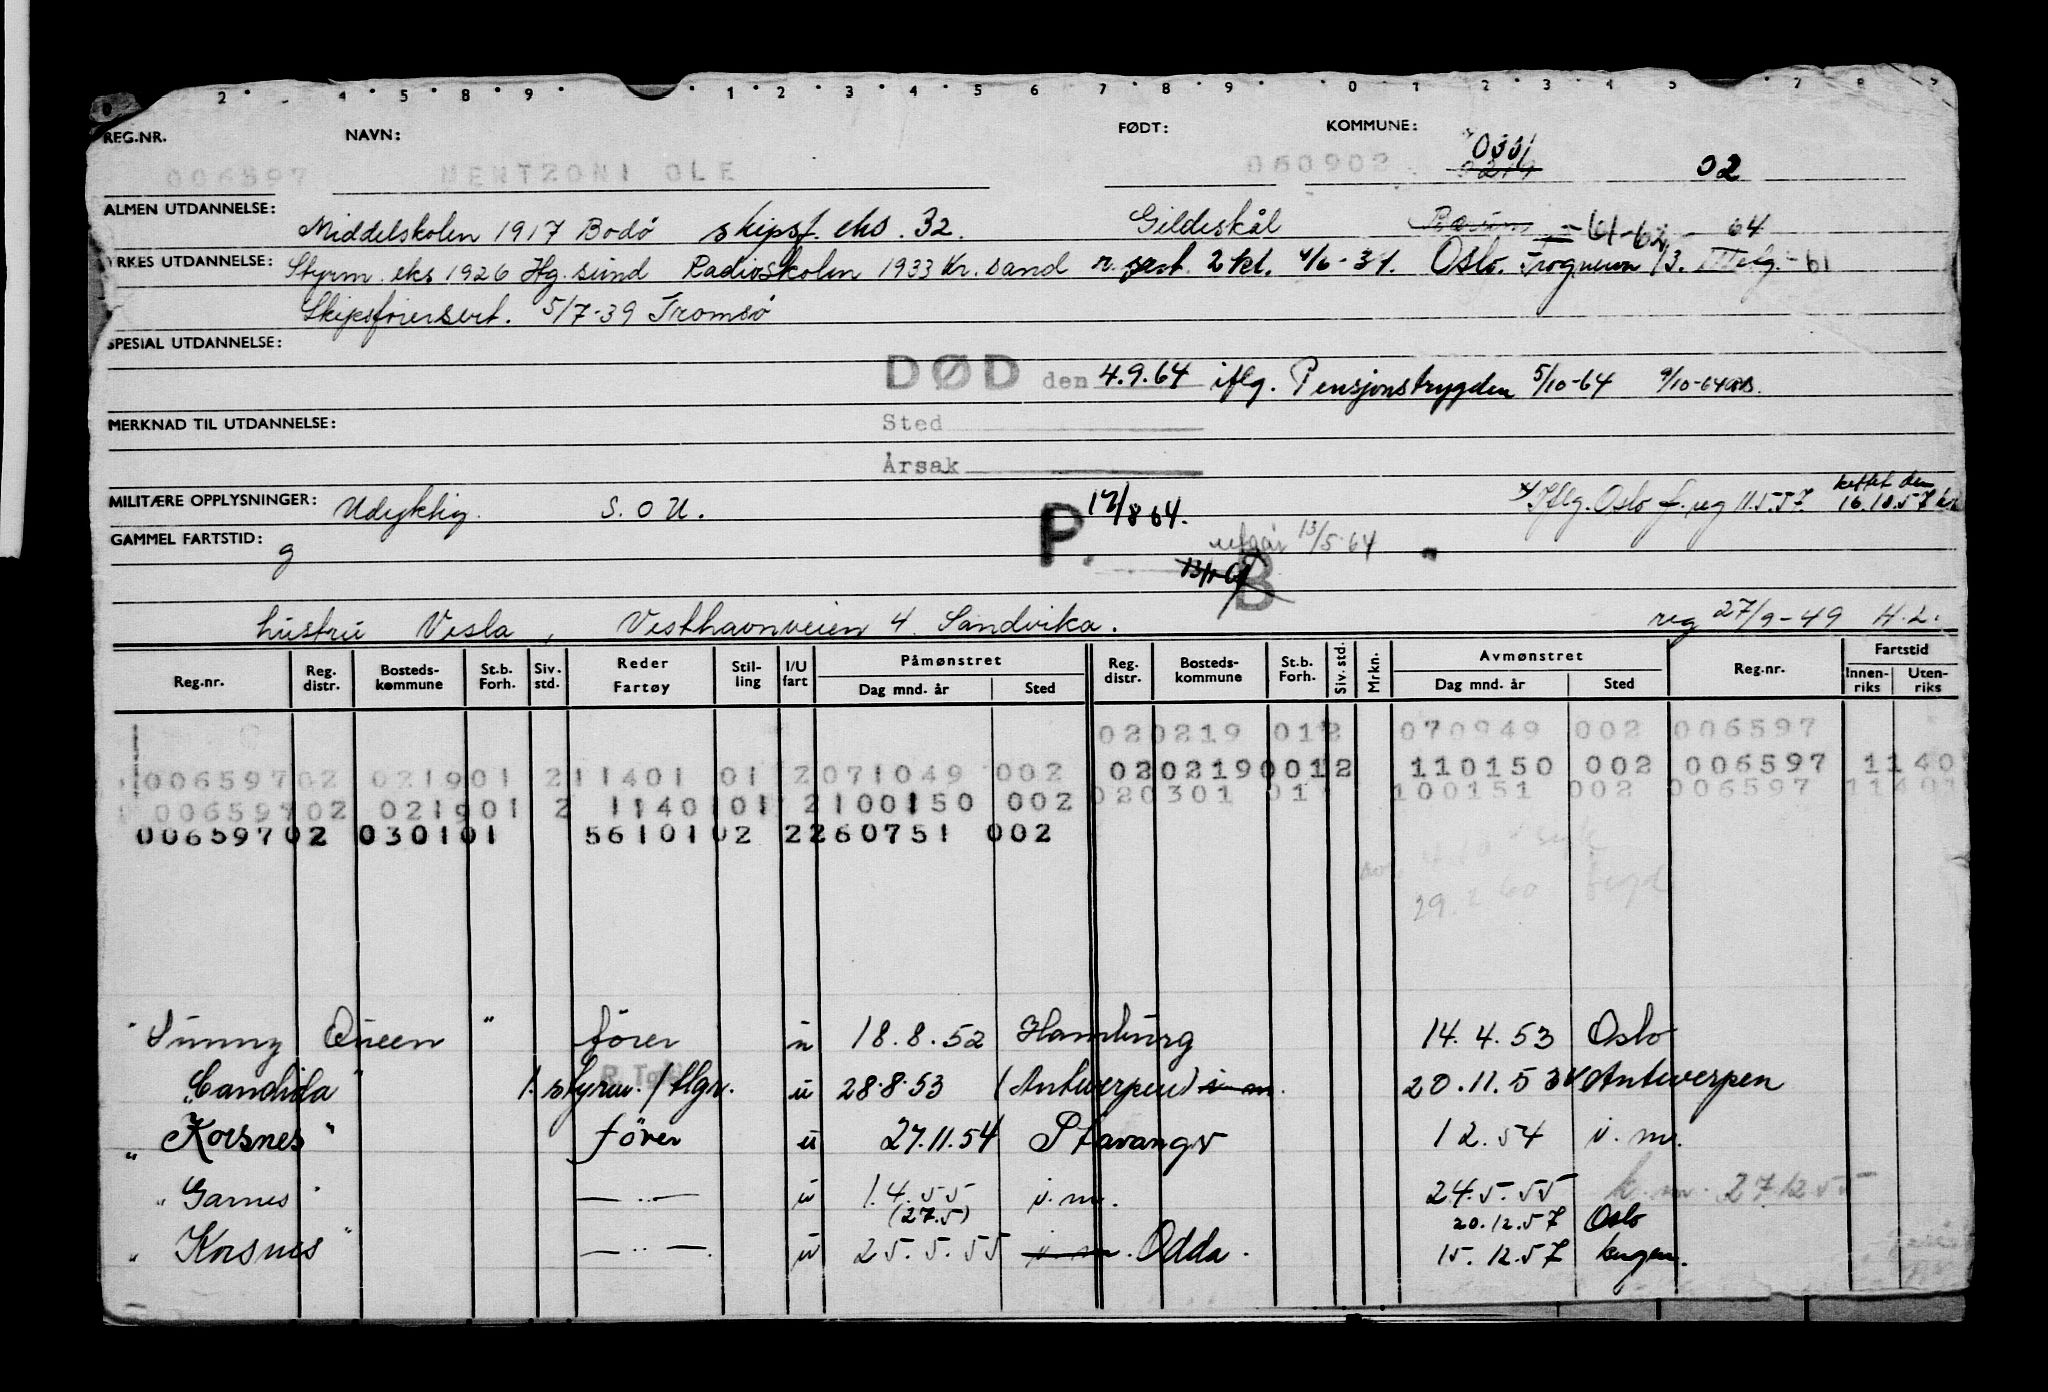 2 4 5 8 9 1 2 3 4 5 6 7 8 9 0 1 2 3 4 5 7 8
REG.NR. NAVN: FØDT: KOMMUNE: 0301
006597 MENTZONI OLE 060902 0219 02
ALMEN UTDANNELSE: Middelskolen 1917 Bodø skipsf. eks. 32. Gildeskål Bærum - 61-62 - 64
YRKES UTDANNELSE: Styrm. eks 1926 Hg.sund Radioskolen 1933 Kr.sand r. sert. 2 kl. 4/6-34. Oslo. 13. - 61
Skipsførersert. 5/7-39 Tromsø
SPESIAL UTDANNELSE:
DØD den 4.9.64 iflg. Pensjonstrygden 5/10-64 9/10-64
MERKNAD TIL UTDANNELSE: Sted
Årsak
MILITÆRE OPPLYSNINGER: Udyktig. S.O.U. P. 17/8 64. Iflg. Oslo f.reg 11.5.57 rettet den 16.10.57
GAMMEL FARTSTID: g utgår 13/5-64
B
hustru Vesla, Vesthavnveien 4 Sandvika. reg 27/9-49 H.L.
Reg.nr. Reg. distr. Bosteds-kommune St.b. Forh. Siv. std. Reder Fartøy Stil-ling I/U fart Påmønstret Dag mnd. år Sted Reg. distr. Bosteds-kommune St.b. Forh. Siv. std. Mrkn. Avmønstret Dag mnd. år Sted Reg.nr. Fartstid Innen-riks Uten-riks
020219 012 070949 002 006597
00659702 021901 211401 01 2071049 002 0202190012 110150 002 006597 1140
00659702 021901 2 1140101 2100150 002 020301 01 100151 002 006597 11401
00659702 030101 5610102 2260751 002
29. 60
" Sunny Queen " fører u 18.8.52 Hamburg 14.4.53 Oslo
" Candida " 1. styrm./tlgr. u 28.8.53 (Antwerpen) i.m. 20.11.53 Antwerpen
" Korsnes " fører u 27.11.54 Stavanger 12.54 i.m.
" Garnes " — " — u 1.4.55 i.m. 24.5.55 k.m. 27.12.55
(27.5) 20.12.57 Oslo
" Korsnes " — " — u 25.5.55 i.m. Odda. 15.12.57